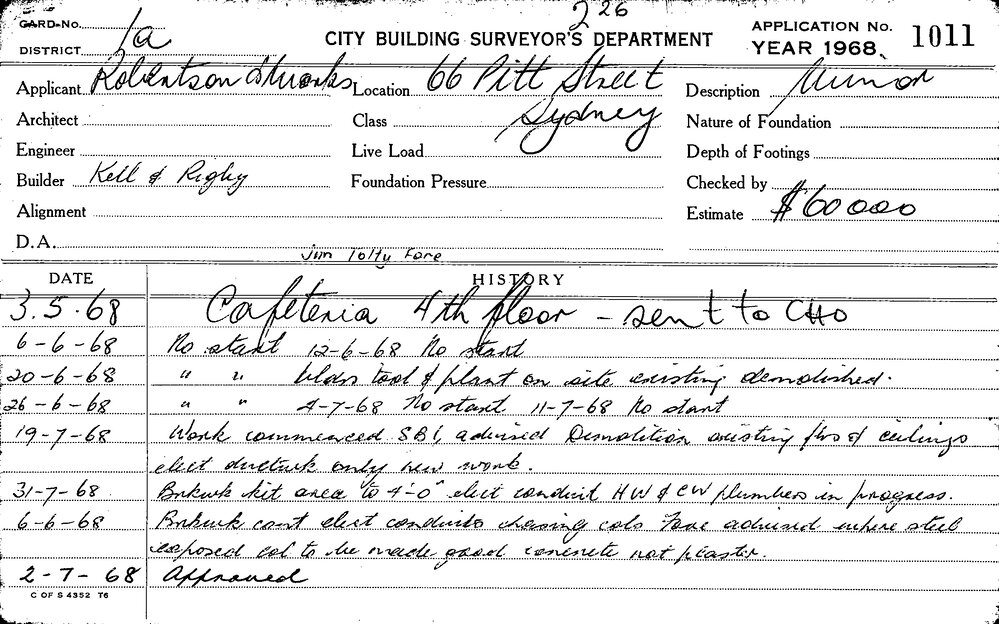 226
CARD-No.
DISTRICT 1a
CITY BUILDING SURVEYOR'S DEPARTMENT
APPLICATION No. 1011
YEAR 1968.
Applicant Robertson & Marks
Location 66 Pitt Street
Sydney
Description Minor
Architect
Class
Nature of Foundation
Engineer
Live Load
Depth of Footings
Builder Kell & Rigby
Foundation Pressure
Checked by
Alignment
Estimate $60000
D.A.
Jim Tolty Fore
DATE HISTORY
3.5.68 Cafeteria 4th floor - sent to CHO
6-6-68 No start 12-6-68 No start
20-6-68 " " bldrs tool & plant on site existing demolished.
26-6-68 " " 4-7-68 No start 11-7-68 No start
19-7-68 Work commenced SBI, advised Demolition existing flrs & ceilings
elect ductwk only new work.
31-7-68 Brkwk kit area to 4'-0" elect conduit HW & CW plumbers in progress.
6-6-68 Brkwk cont elect conduits chasing cols Fore advised where steel
exposed col to be made good concrete not plaster.
2-7-68 Approved
C OF S 4352 T6